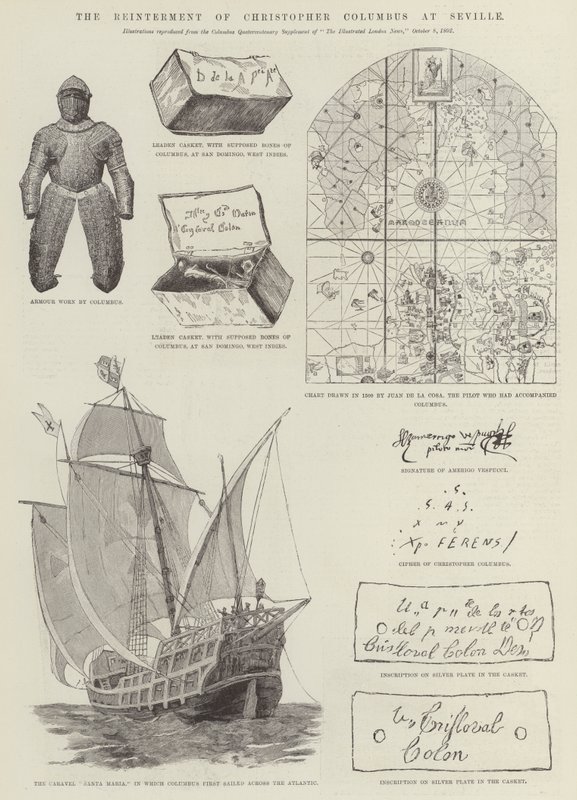 THE REINTERMENT OF CHRISTOPHER COLUMBUS AT SEVILLE.
Illustrations reproduced from the Columbus Quatercentenary Supplement of "The Illustrated London News," October 8, 1892.
D de la A Pra Ate
LEADEN CASKET, WITH SUPPOSED BONES OF
COLUMBUS, AT SAN DOMINGO, WEST INDIES.
Cristoval Colon
LEADEN CASKET, WITH SUPPOSED BONES OF
COLUMBUS, AT SAN DOMINGO, WEST INDIES.
ARMOUR WORN BY COLUMBUS.
MARE OCEANUM
CHART DRAWN IN 1500 BY JUAN DE LA COSA, THE PILOT WHO HAD ACCOMPANIED
COLUMBUS.
SIGNATURE OF AMERIGO VESPUCCI.
.S.
.S. A .S.
X M Y
: Xpo FERENS /
CIPHER OF CHRISTOPHER COLUMBUS.
Cristoval Colon Des
INSCRIPTION ON SILVER PLATE IN THE CASKET.
Cristoval
Colon
INSCRIPTION ON SILVER PLATE IN THE CASKET.
THE CARAVEL "SANTA MARIA," IN WHICH COLUMBUS FIRST SAILED ACROSS THE ATLANTIC.